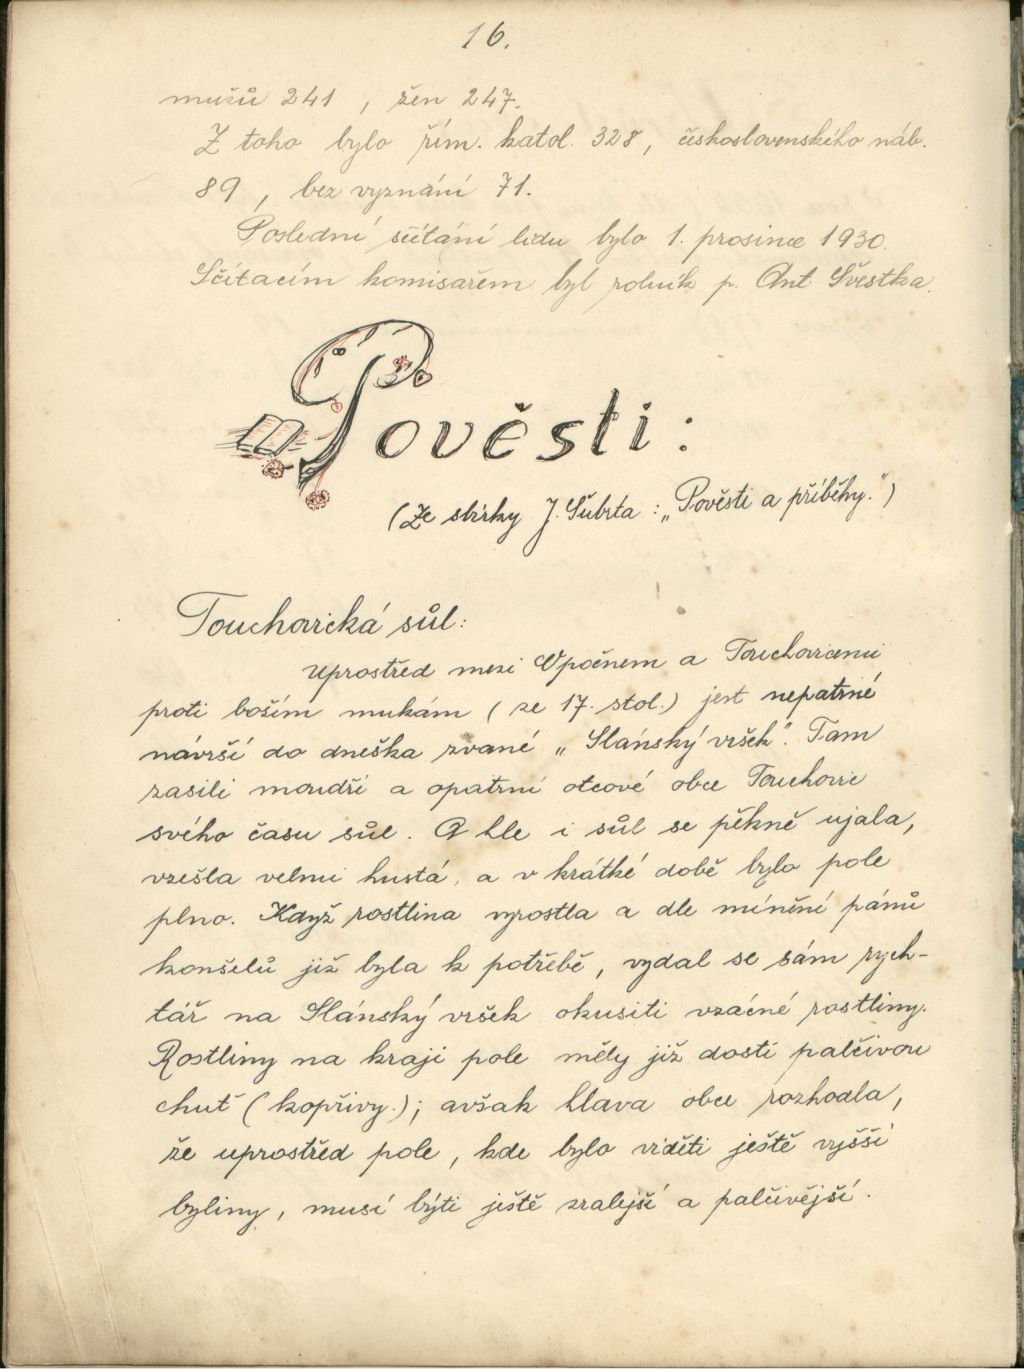 16.
mužů 241 , žen 247.
Z toho bylo řím. katol. 328, československého náb.
89 , bez vyznání 71.
Poslední sčítání lidu bylo 1. prosince 1930.
Sčítacím komisařem byl rolník p. Ant. Švestka.
Pověsti:
(Ze sbírky J. Šubrta : „Pověsti a příběhy.")
Touchovická sůl:
Uprostřed mezi Opočnem a Touchovicemi
proti božím mukám ( ze 17. stol.) jest nepatrné
návrší do dneška zvané „ Slánský vršek". Tam
zasili moudří a opatrní otcové obce Touchovic
svého času sůl . A hle i sůl se pěkně ujala,
vzešla velmi hustá, a v krátké době bylo pole
plno. Když rostlina vyrostla a dle mínění pánů
konšelů již byla k potřebě, vydal se sám rych-
tář na Slánský vršek okusiti vzácné rostliny.
Rostliny na kraji pole měly již dosti palčivou
chuť ( kopřivy.); avšak hlava obce rozhodla,
že uprostřed pole, kde bylo viděti ještě vyšší
byliny, musí býti ještě zralejší a palčivější.